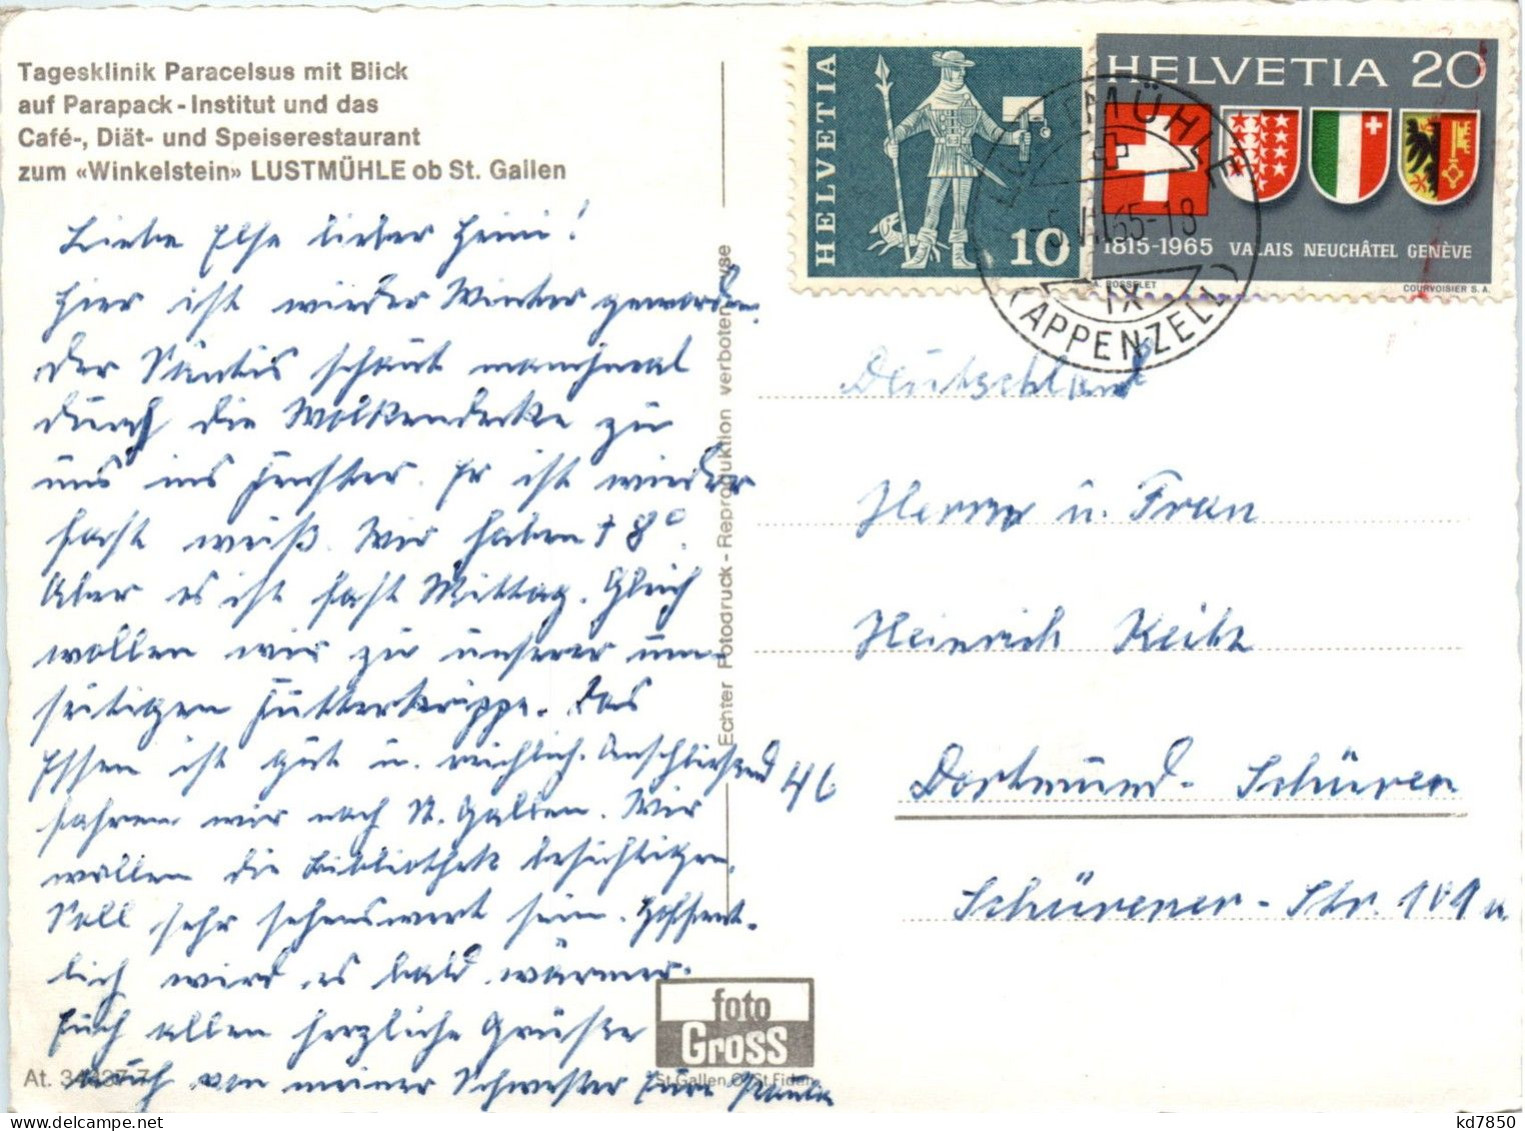 Tagesklinik Paracelsus mit Blick
auf Parapack-Institut und das
Café-, Diät- und Speiserestaurant
zum «Winkelstein» LUSTMÜHLE ob St. Gallen
Liebe Else lieber Heini!
Hier ist wieder Winter geworden.
Der Säntis schaut manchmal
durch die Wolkendecke zu
uns ins Fenster. Er ist wieder
fast weiß. Wir haben + 8°.
Aber es ist fast Mittag. Gleich
wollen wir zu unserer
Futterkrippe. Das
Essen ist gut u. reichlich. Anschließend
fahren wir nach St. Gallen. Wir
wollen die Bibliothek besichtigen.
Soll sehr sehenswert sein. Hoffent-
lich wird es bald wärmer.
Euch allen herzliche Grüße
auch von meiner Schwester Eure Paula
At.
Echter Fotodruck - Reproduktion verboten
foto
Gross
St. Gallen O St. Fiden
HELVETIA
10
HELVETIA 20
1815-1965 VALAIS NEUCHÂTEL GENÈVE
COURVOISIER S.A.
LUSTMÜHLE
65-18
(APPENZELL)
Deutschland
Herrn u. Frau
Heinrich
46 Dortmund-Schüren
Schürener-Str. 101a
kd7850